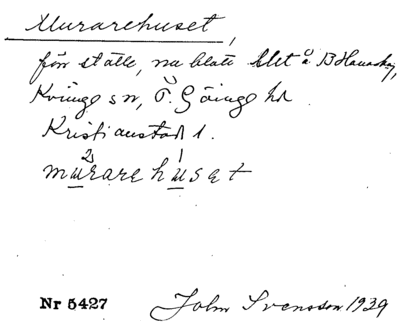 Murarehuset,
förr ställe, nu blott
Kviinge sn, Ö. Göinge hd
Kristianstad l.
2 1
murarehuset
Nr 5427 John Svensson 1939